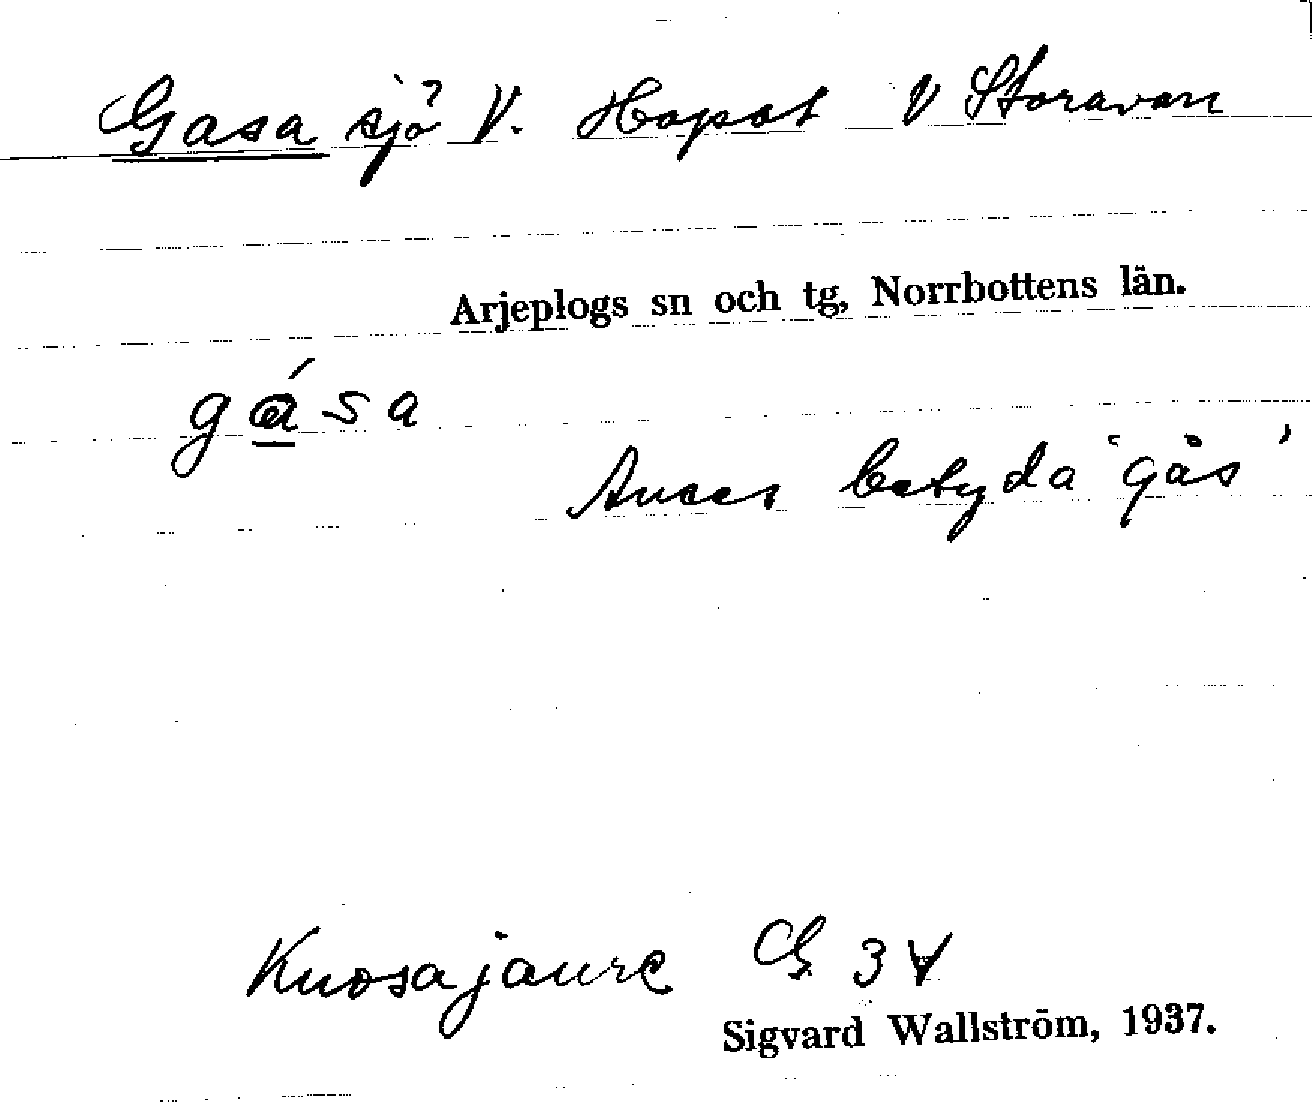 Gasa sjö V. Hapat V Storavan
Arjeplogs sn och tg, Norrbottens län.
gása
Anses betyda "gås"
Kuosajaure G 34
Sigvard Wallström, 1937.